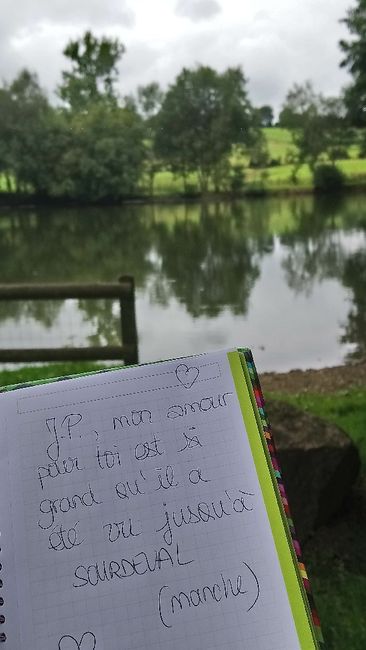 J.P., mon amour
pour toi est si
grand qu'il a
été vu jusqu'à
SOURDEVAL
(manche)